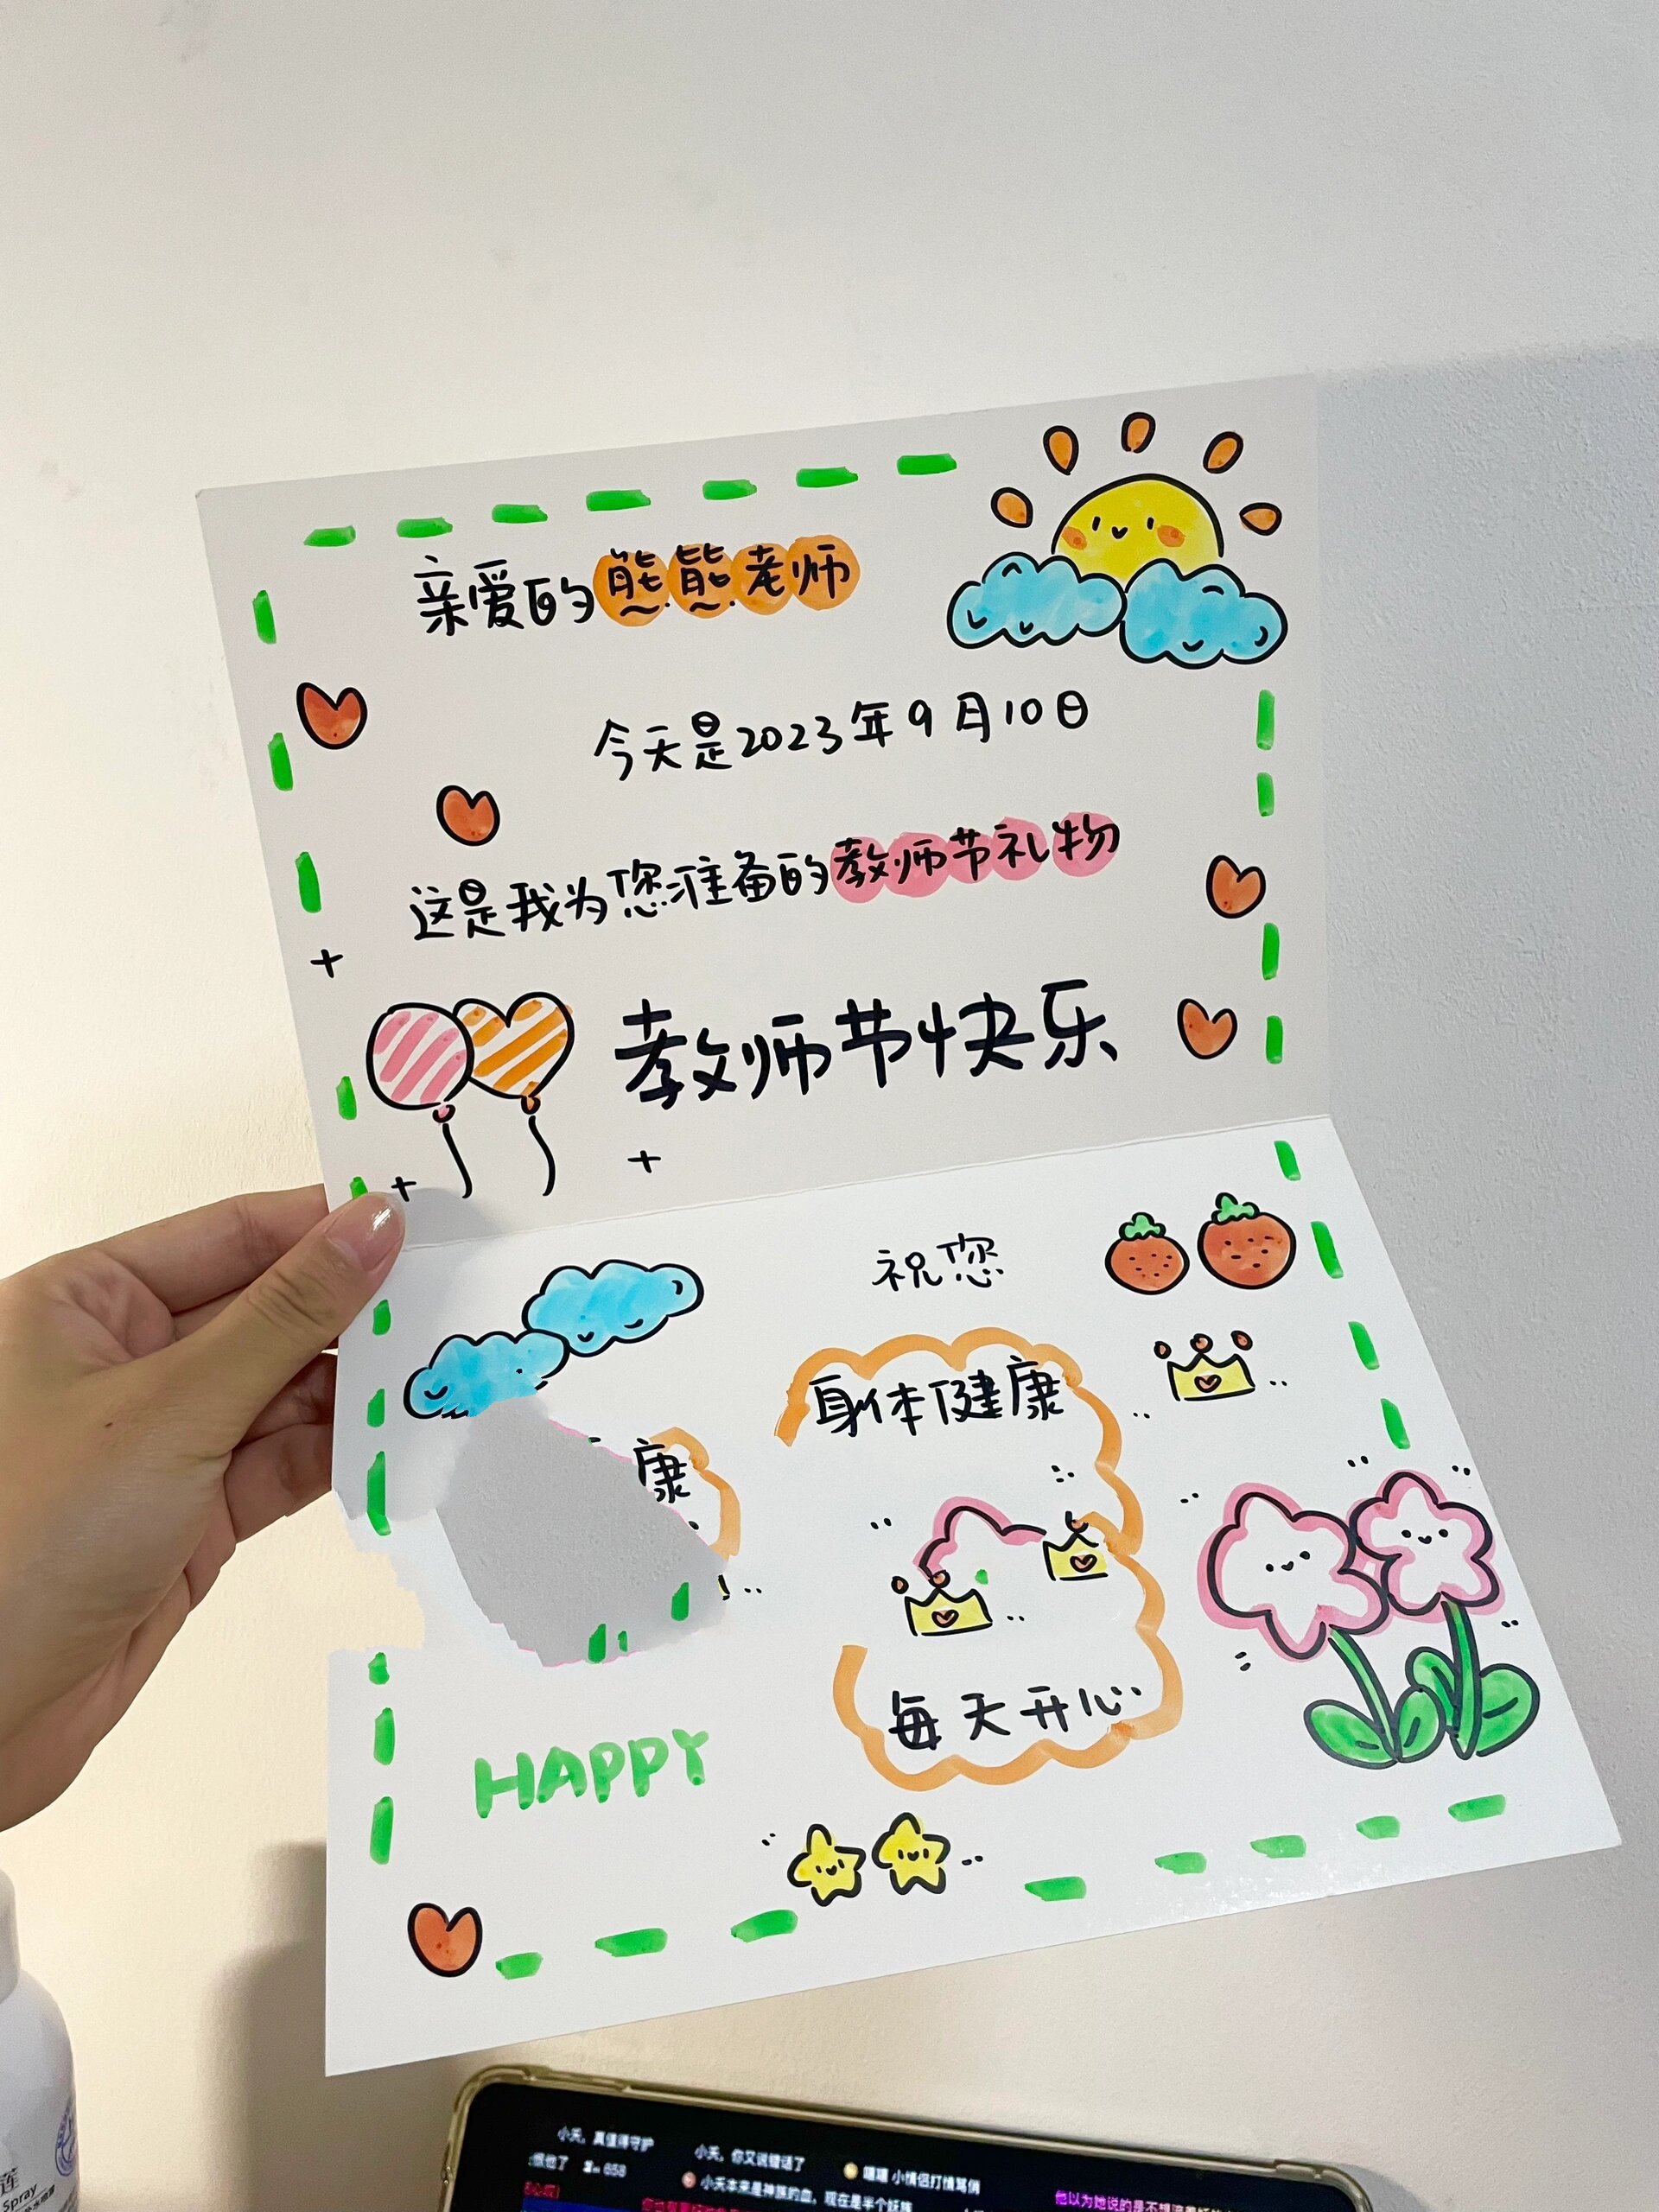 亲爱的熊熊老师
今天是2023年9月10日
这是我为您准备的教师节礼物
教师节快乐
祝您
身体健康
康
每天开心
HAPPY
小天，真值得守护
小天，你又说错话了
嘻嘻 小情侣打情骂俏
恨他了 658
小天本来是神族的血，现在是半个妖族
莲
Spray